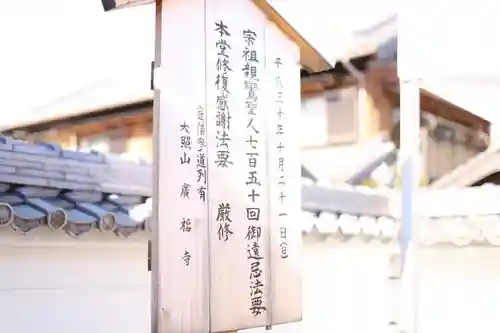 平成三十年十月二十一日(日)
宗祖親鸞聖人七百五十回御遠忌法要
本堂修復感謝法要 厳修
道列有
大照山廣福寺